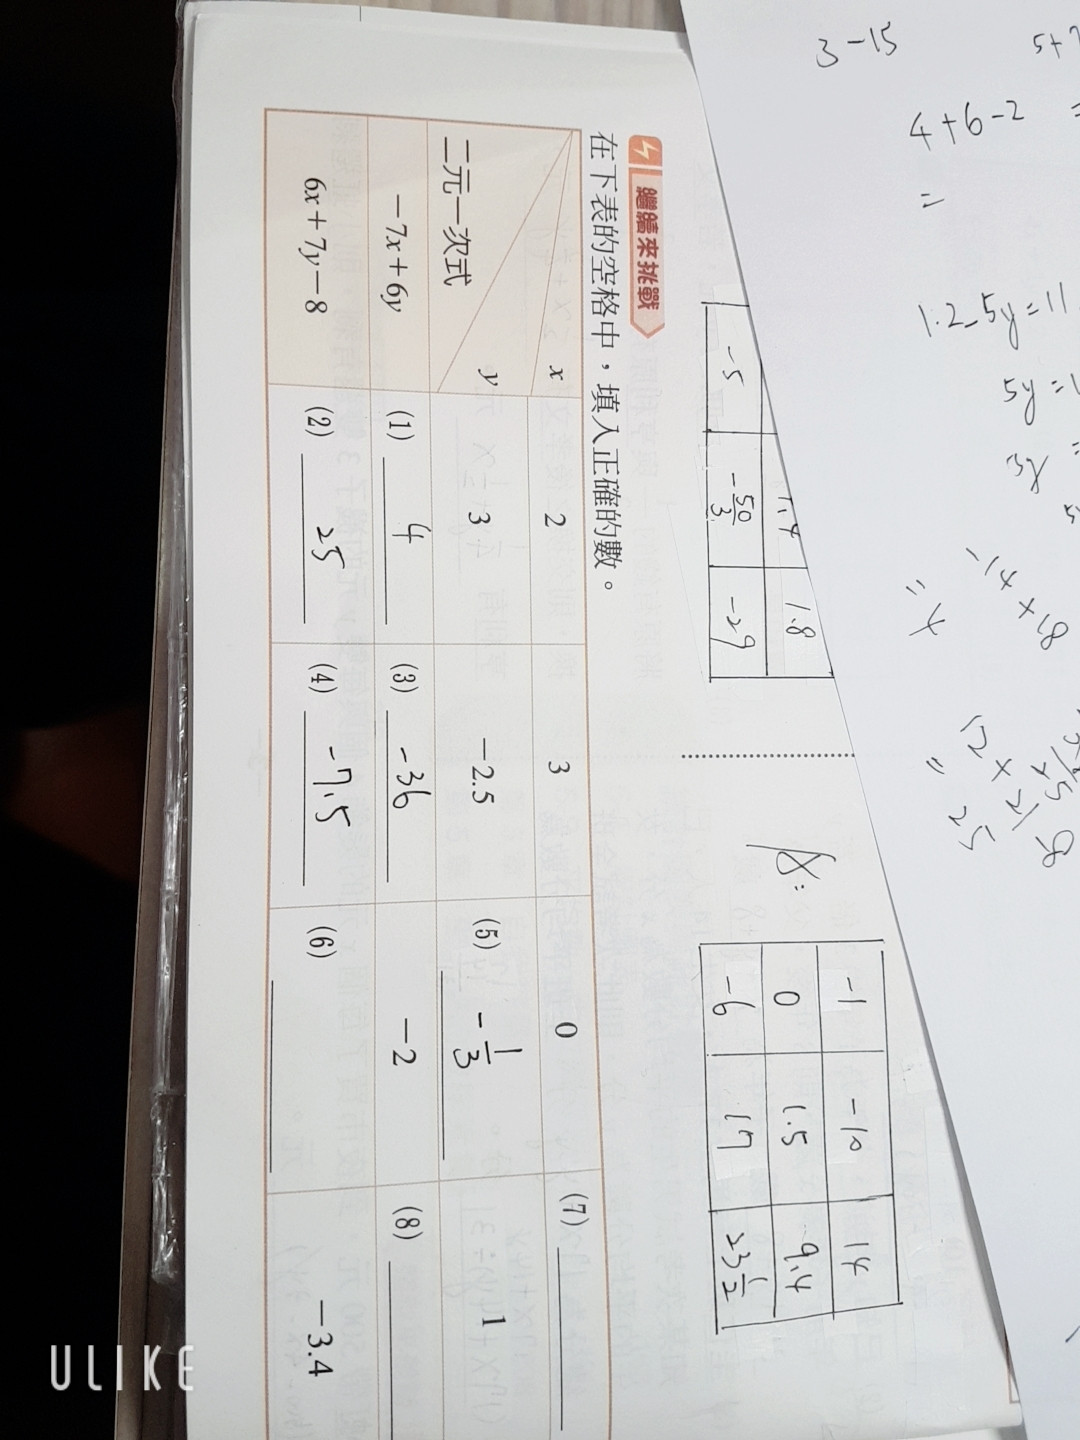 3-15
5+
4+6-2 =
=
1.2-5y=11
5y=1
-14+18
=4
12+21-8
=25
1.4
1.8
-5
-50/3
-29
A:
-1
-10
14
0
1.5
9.4
-6
17
23 1/2
繼續來挑戰
在下表的空格中，填入正確的數。
x
2
3
0
(7)
y
二元一次式
3
-2.5
(5) -1/3
1
-7x+6y
(1) 4
(3) -36
-2
(8)
6x+7y-8
(2) 25
(4) -7.5
(6)
-3.4
ULIKE